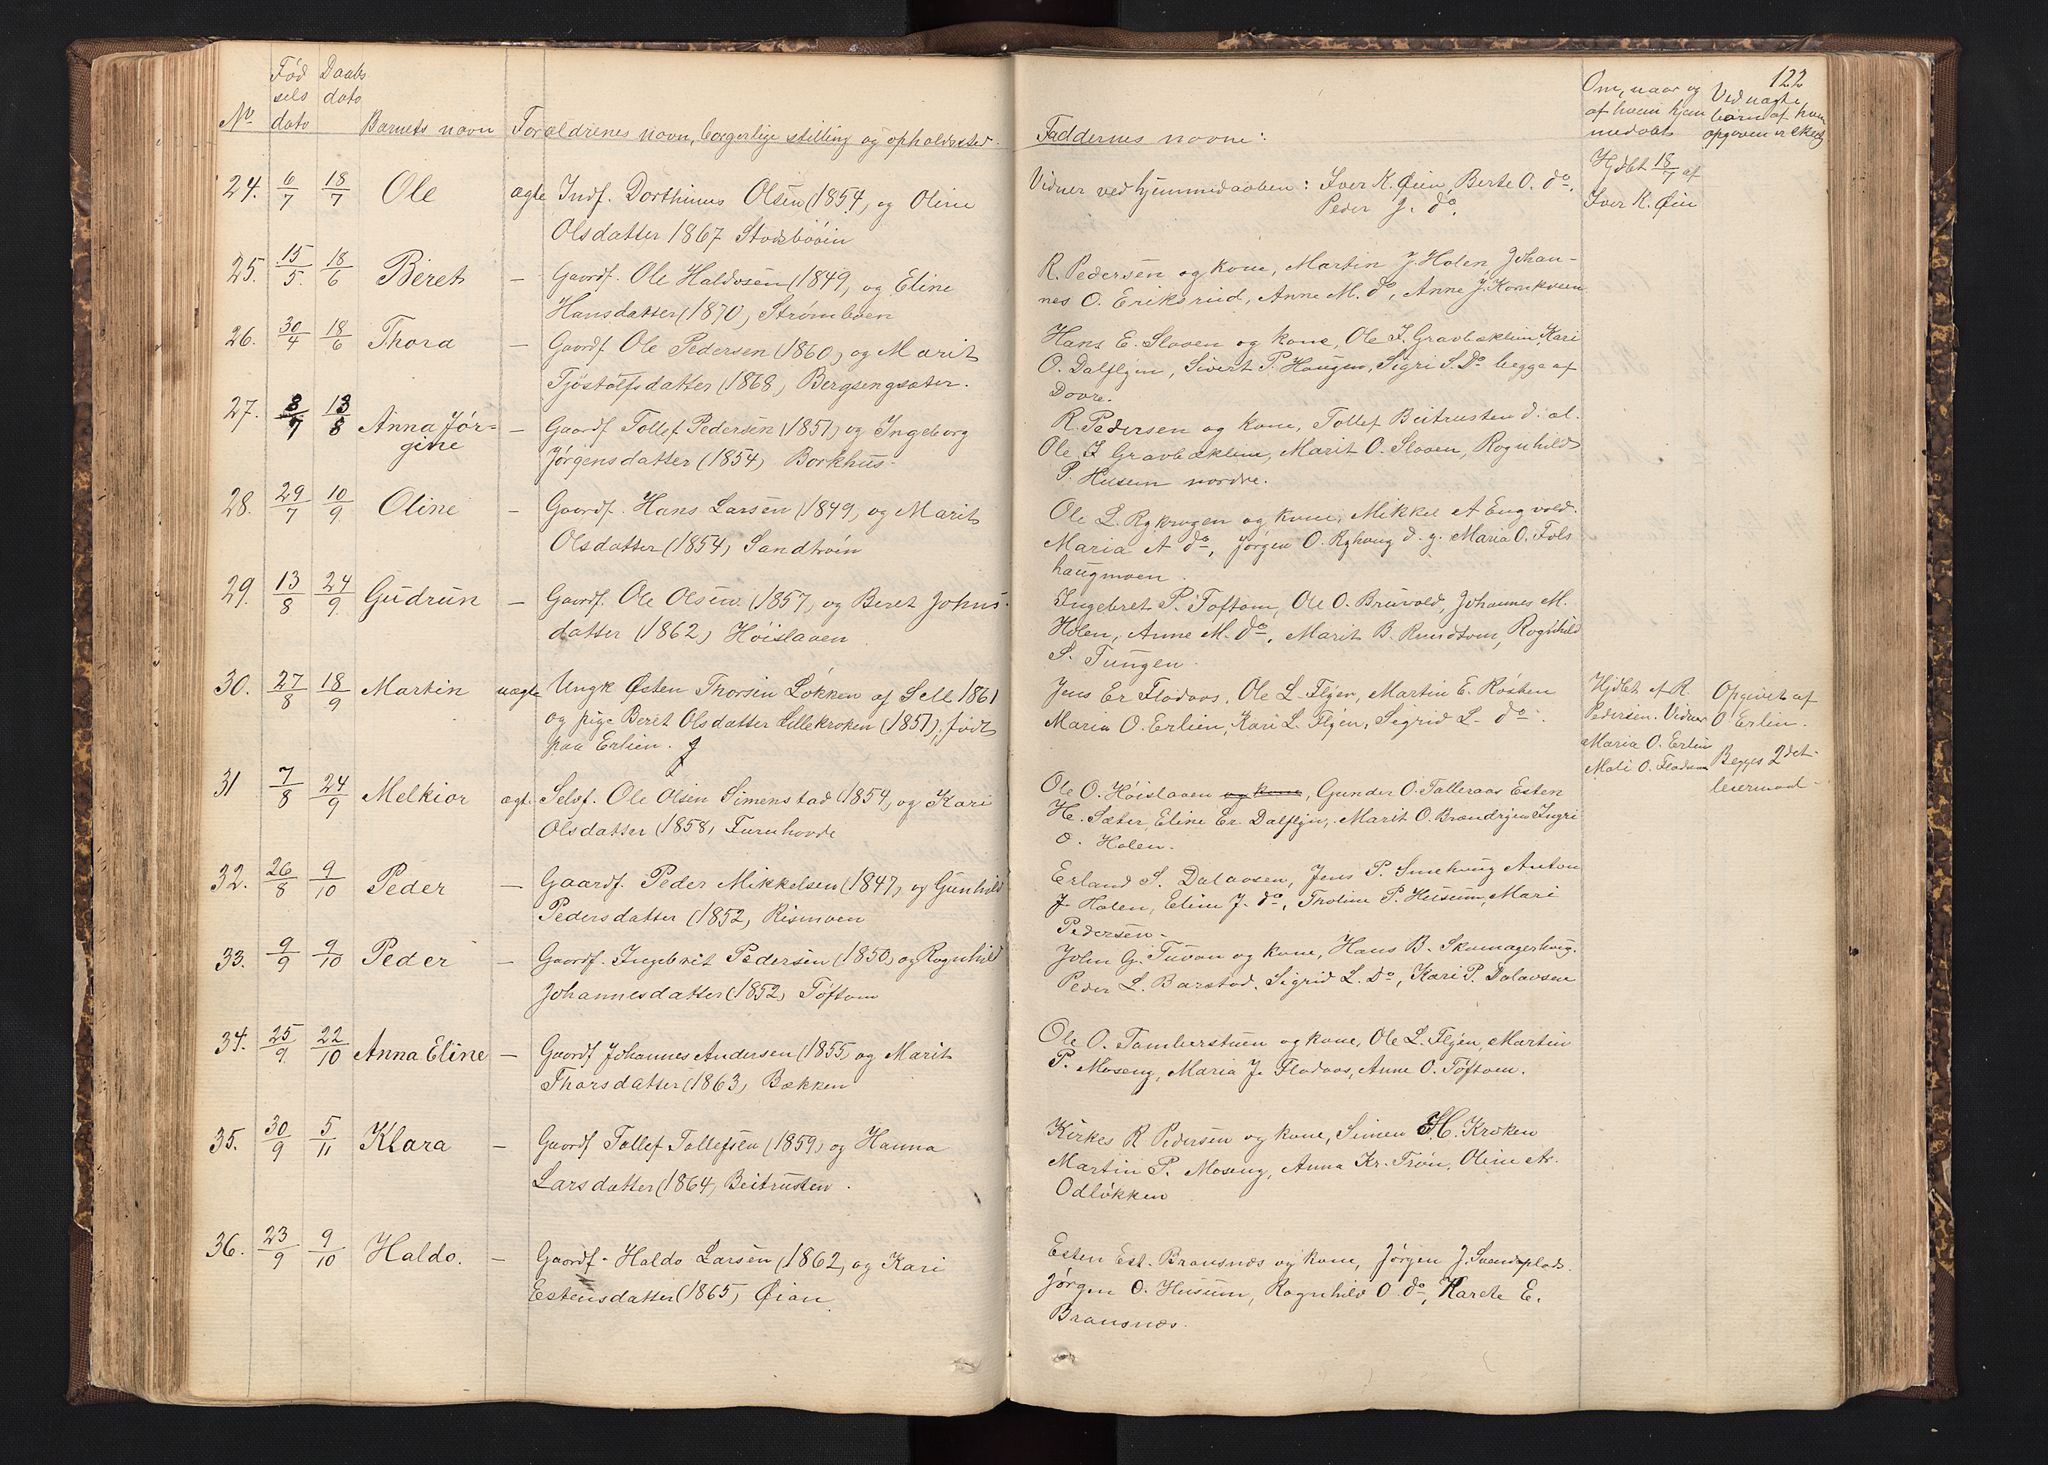 122
Fød Daabs
sels dato
No dato Barnets navn Forældrenes navn, borgerlige stilling og opholdssted.
24. 6/7 18/7 Ole ægte Indf. Dorthinus Olsen (1854, og Oline
Olsdatter 1867 Stodsbøien
25. 15/5. 18/6 Beret — Gaardf. Ole Haldosen (1849, og Eline
Hansdatter (1870, Strømboen
26. 30/4 18/6 Thora — Gaardf. Ole Pedersen (1860, og Marit
Tjøstolfsdatter (1868, Bergsengsæter.
27. 3/7 13/8 Anna Jør- — Gaardf Tollef Pedersen (1851, og Ingeborg
gine Jørgensdatter (1854, Borkhus-
28. 29/7 10/9 Oline — Gaardf. Hans Larsen (1849, og Marit
Olsdatter (1854, Sandtrøen
29. 13/8 24/9 Gudrun — Gaardf. Ole Olsen (1857, og Beret Johns-
datter (1862, Høislaaen
30. 27/8 18/9 Martin uægte Ungk Østen Thorsen Løkken af Sell 1861
og pige Beret Olsdatter Lillekroken (1851), født
paa Erlien.
31 7/8 24/9 Melkior ægt. Selvf. Ole Olsen Simenstad (1854, og Kari
Olsdatter (1858, Turnhovde
32. 26/8 9/10 Peder — Gaardf. Peder Mikkelsen (1847, og Gunhild
Pedersdatter (1852, Rismoen
33. 9/9 9/10 Peder — Gaardf. Ingebret Pedersen (1850, og Rognhild
Johannesdatter (1852, Tøftom
34. 25/9 22/10 Anna Eline — Gaardf Johannes Andersen (1855, og Marit
Thorsdatter (1863, Bækken
35. 30/9 5/11 Klara — Gaardf Tollef Tollefsen (1859, og Hanna
Larsdatter (1864, Beitrusten.
36. 23/9 9/10 Haldo. — Gaardf. Haldo Larsen (1862, og Kari
Estensdatter (1865, Øian
Om, naar og
af hvem hjem
medøbt
Ved uægte
børn af hvem
opgiven
Faddernes navne:
Vidner ved hjemmedaaben: Iver K. Øien, Berte O. do,
Peder J. do.
Hjdbt 18/7 af
Iver K. Øien
R. Pedersen og kone, Martin J. Holen Johan-
nes O. Eriksrud, Anne M. do, Anne J. Kornkveen
Hans E. Slaaen og kone, Ole I. Gravbæklien, Kari
O. Dalflyen, Sivert P. Haugen, Sigri S. Do begge af
Dovre.
R. Pedersen og kone, Tollef Beitrusten d. æl.
Ole I Gravbæklien, Marit O. Slaaen, Rognhild
P. Husem nordre.
Ole L. Rykrogen og kone, Mikkel A Engvold.
Maria A do, Jørgen O. Ryhaug d. y. Maria O. Fols
haugmoen.
Ingebret P. Tøftom, Ole O. Bruvold, Johannes M.
Holen, Anne M. do, Marit B. Rundtom, Rognhild
S. Tungen.
Jens Er Flodaas, Ole L. Flyen, Martin E. Røsten
Maria O. Erlien, Kari L. Flyen, Sigrid L. do.
Hjdbt af R.
Pedersen. Vidner
Maria O. Erlien
Mali O. Flodaas
Opgivet af
O. Erlien.
Begges 2det
leiermaal-
Ole O. Høislaaen og kone, Gunder O. Talleraas Esten
H. Sæter, Eline Er. Dalflyen, Marit O. Brændryen Ingri
O. Holen.
Erland S. Dalaasen, Jens P. Smehaug Anton
J. Holen, Eline J. do, Tholine P. Husum, Mari
Pedersen-
John G. Tuvan og kone, Hans B. Skomagerhaug.
Peder L. Barstad, Sigrid L. Do, Kari P. Dalaasen
Ole O. Tamberstuen og kone, Ole L. Flyen, Martin
P. Moseng, Maria J. Flodaas, Anne O. Tøftom.
Kirkes R Pedersen og kone, Simen H. Kroken
Martin P. Moseng, Anna Kr. Trøn, Oline
Odløkken
Esten Est. Bransnæs og kone, Jørgen J. Svendsplads.
Jørgen O. Husum, Rognhild O. do, Karete E.
Bransnæs.